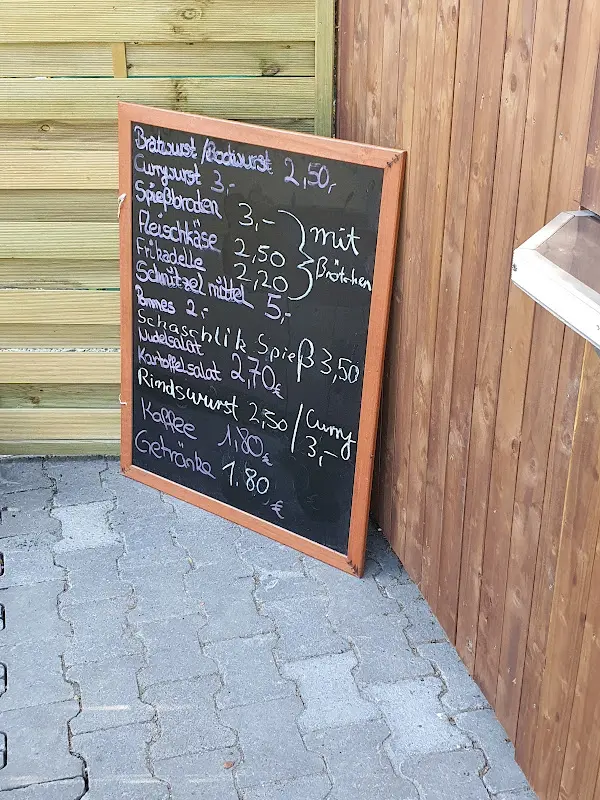 Bratwurst / Bockwurst 2,50,-
Currywurst 3,-
Spießbraden 3,-
Fleischkäse 2,50
Frikadelle 2,20
mit
Brötchen
Schnitzel mittel 5,-
Pommes 2,-
Schaschlik Spieß 3,50
Nudelsalat
Kartoffelsalat 2,70€
Rindswurst 2,50 / Curry 3,-
Kaffee 1,80€
Getränke 1.80 €